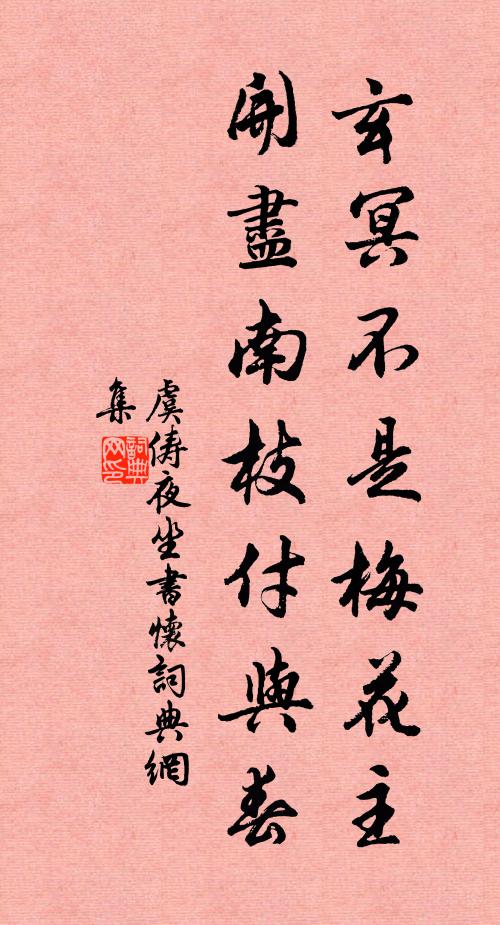 玄冥不是梅花主
開盡南枝付與春
虞儔夜坐書懷詞典網
集
詞典
網印